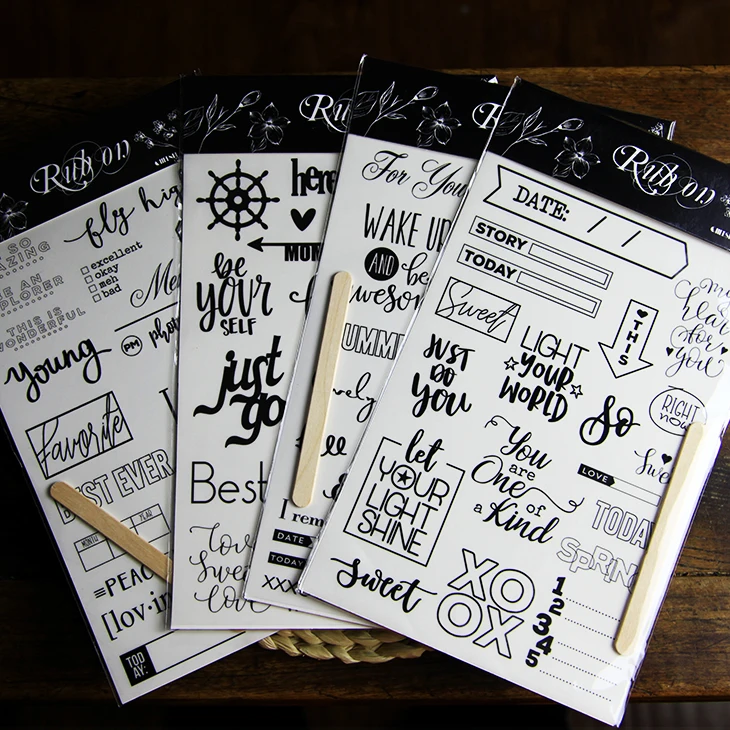 Rub on
fly hig
excellent
okay
meh
bad
THIS IS
WONDERFUL
PM
Young
favorite
BEST EVER
MONTH
YEAR
=PEAC
[lov·in
TOD
AY:
Rub
here
MOM
be
YOUR
SELF
just
go
Best
love
sweet
love
R
For You
WAKE UP
AND be
awesom
UMM
I rem
DATE
TODAY
XXX
Rub on
DATE: / /
STORY
TODAY
Sweet
THIS
my
heart
for
you
JUST
DO
YOU
LIGHT
YOUR
WORLD
So
RIGHT
now
let
YOUR
LIGHT
SHINE
You
are
One
of
a Kind
Swe
LOVE
TODAY
SPRIN
sweet
XO
OX
1
2
3
4
5